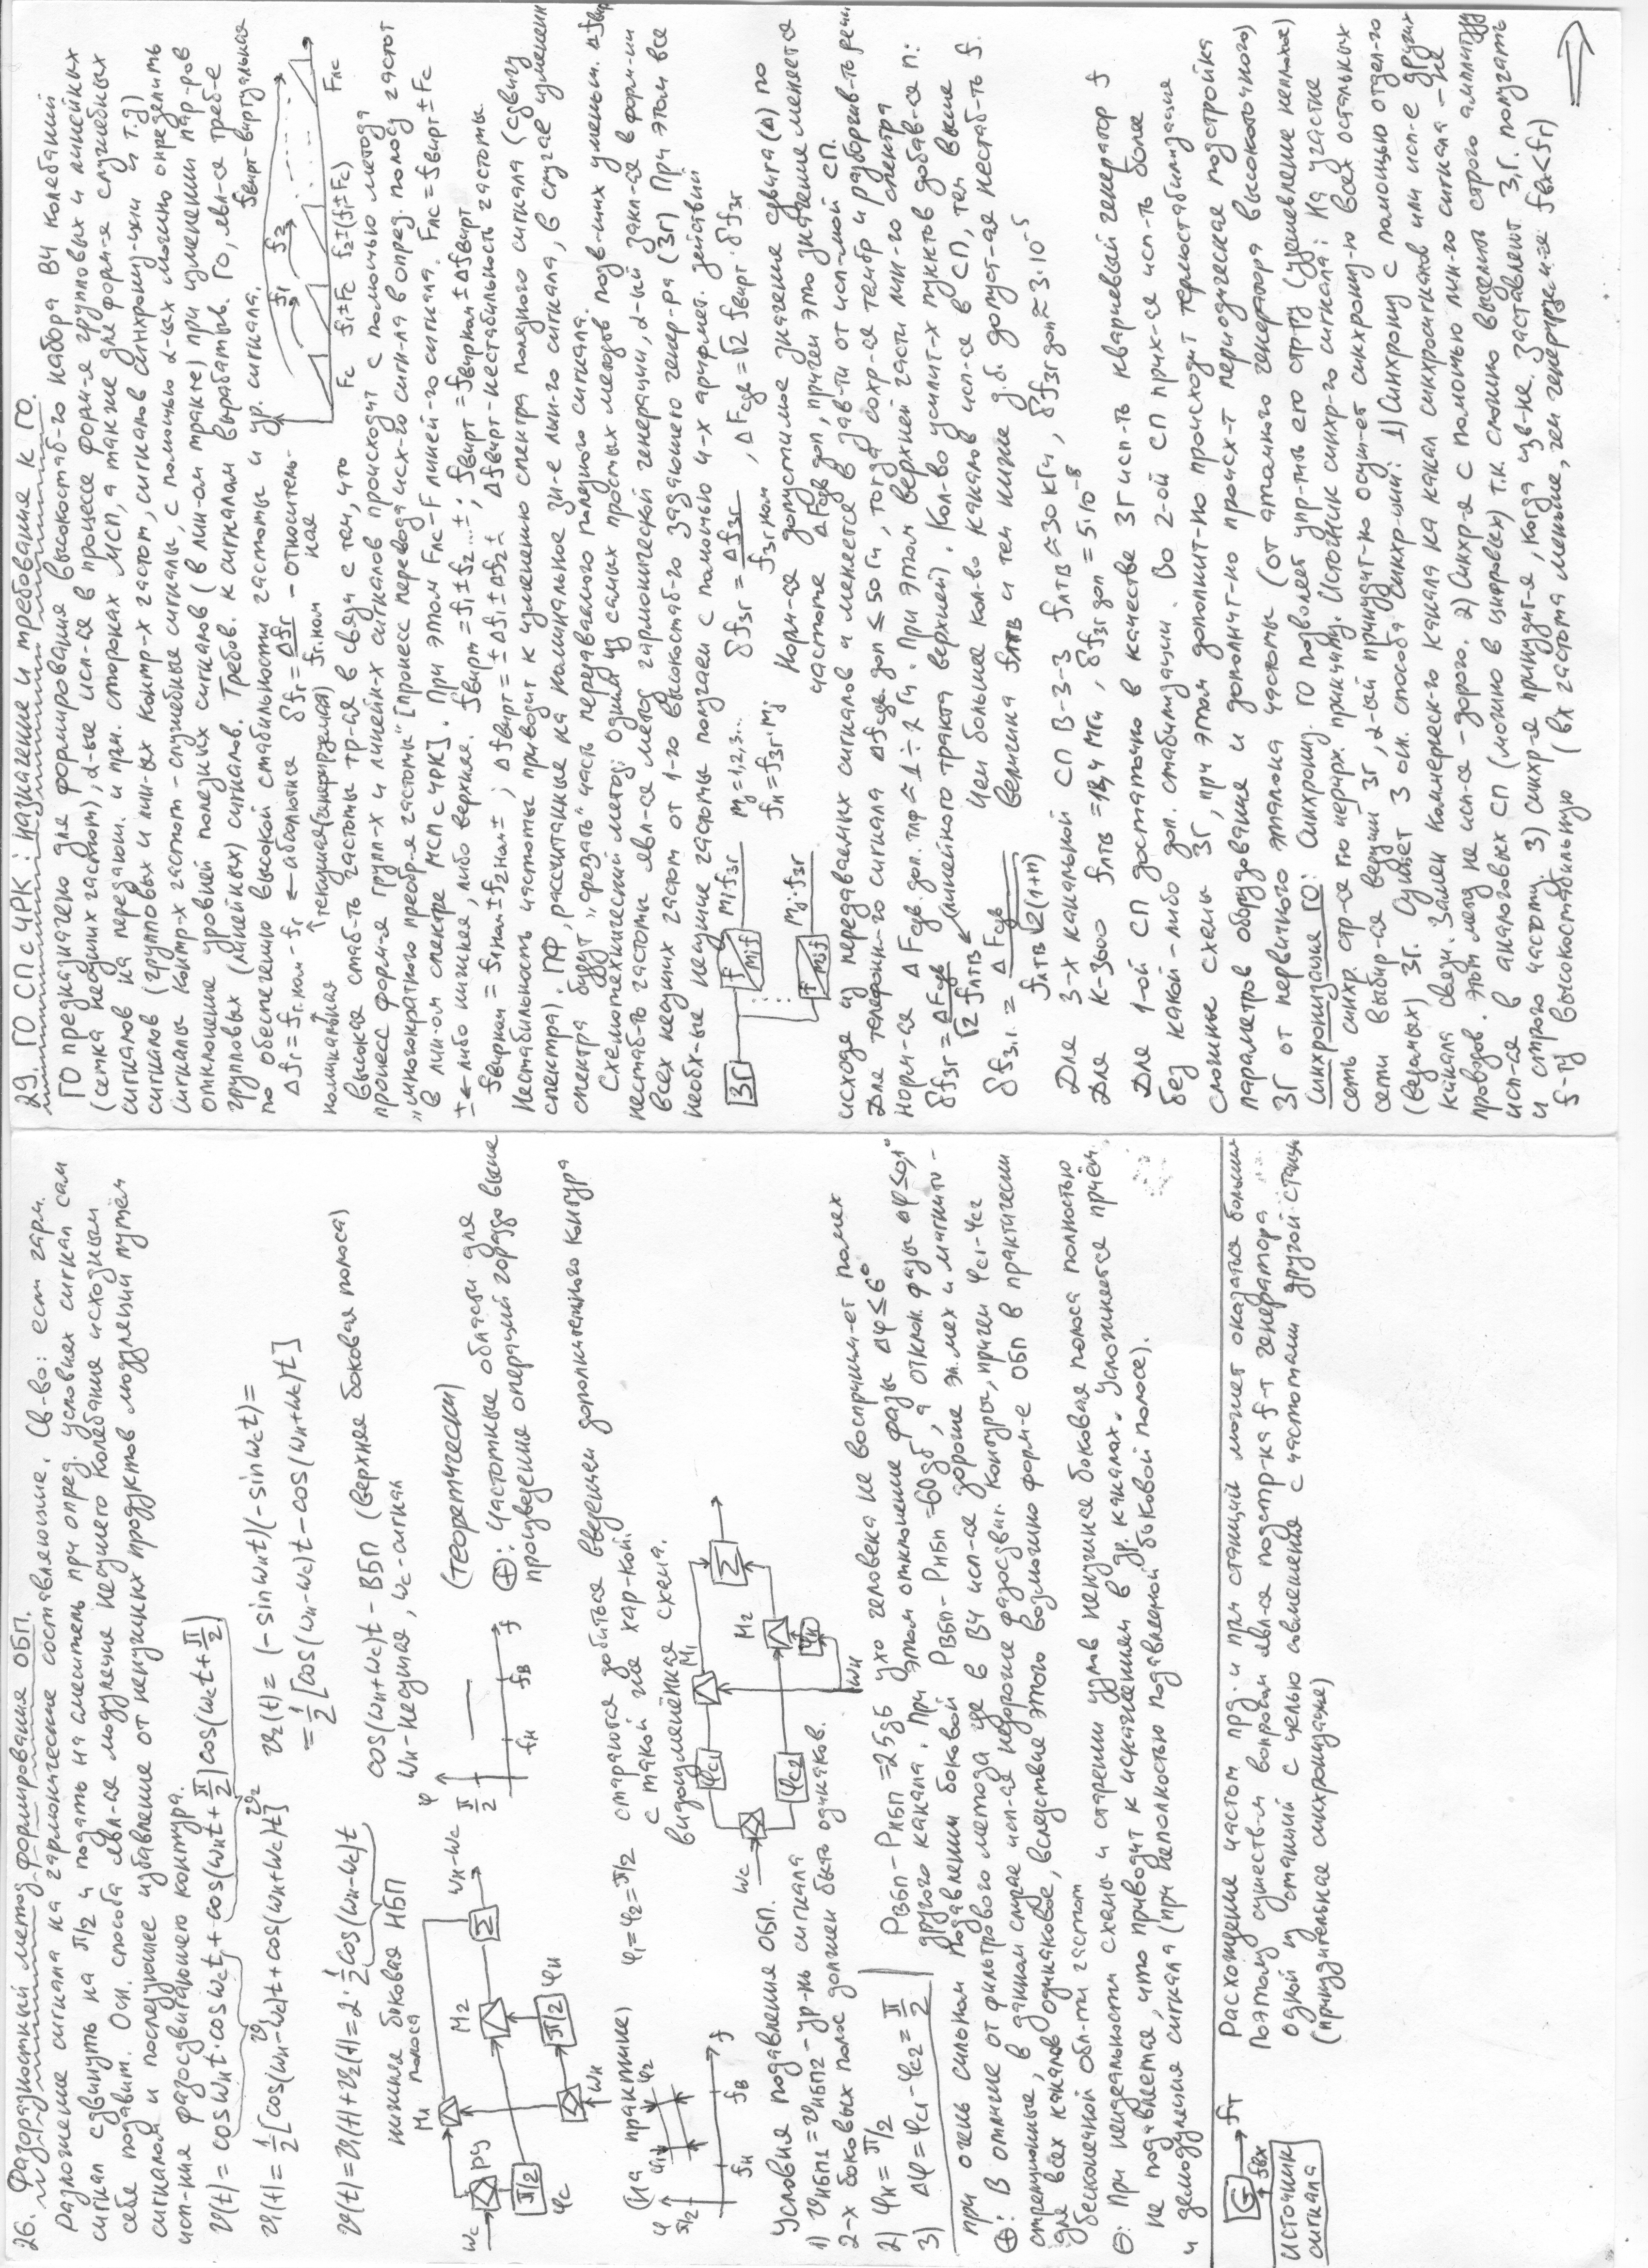 26. Фазоразностный метод формирования ОБП.
Разложение сигнала на гармонические составляющие. Св-во: если гарм.
сигнал сдвинуть на π/2 и подать на смеситель при опред. условиях сигнал сам
себе подавит. Осн. способа явл-ся модуляция несущего колебания исходным
сигналом и последующее избавление от ненужных продуктов модуляции путём
исп-ния фазосдвигающего контура.
V(t) = cosωнt·cosωct + cos(ωнt+π/2)cos(ωct+π/2)
V1 V2
V1(t) = 1/2[cos(ωн-ωc)t+cos(ωн+ωc)t] V2(t) = (-sinωнt)(-sinωct) =
= 1/2[cos(ωн-ωc)t-cos(ωн+ωc)t]
V(t)=V1(t)+V2(t)=2·1/2cos(ωн-ωc)t
нижняя боковая полоса НБП
cos(ωн+ωc)t - ВБП (верхняя боковая полоса)
ωн-несущая, ωc-сигнал
ωc РУ M1 M2 Σ ωн-ωc
π/2 φc ωн π/2 φн
φ π/2 fн fв f
(теоретически)
⊕: Частотные области для
произведение операций гораздо выше
(на практике) φ1=φ2=π/2 стараются добиться введением дополнительного контура
с такой же хар-кой.
видоизменённая схема.
φ π/2 φ1 φ2 fн fв f
ωc φc1 φc2 M1 M2 Σ φн ωн
Условия подавления ОБП.
1) VНБП1=VНБП2 - ур-нь сигнала
2-х боковых полос должен быть одинаков.
2) φн=π/2
3) Δφ=φc1-φc2=π/2
РВБП-РНБП=25дБ ухо человека не восприним-ет помех
другого канала. При этом отклонение фазы Δφ≤6°
при очень сильном подавлении боковой РВБП-РНБП=60дБ, а отклон. фазы Δφ≤0,1°
⊕: В отличие от фильтрового метода где в ВЧ исп-ся дорогие эл.мех и магнито-
стрекционные, в данном случае исп-ся недорогие фазосдвиг. контуры, причем φc1-φc2
для всех каналов одинаковое, вследствие этого возможно форм-е ОБП в практически
бесконечной обл-ти частот
⊖: При неидеальности схемы и старении узлов ненужная боковая полоса полностью
не подавляется, что приводит к искажениям в др. каналах. Усложняется приём
и демодуляция сигнала (при неполностью подавленной боковой полосе).
G fг
fвх
Источник сигнала
Расхождение частот прд. и прм станций может оказаться больши
Поэтому существ-м вопросом явл-ся подстр-ка f-т генератора
одной из станций с целью совмещения с частотами другой станц
(принудительная синхронизация)
29. ГО СП с ЧРК: назначение и требование к ГО.
ГО предназначено для формирования высокостаб-го набора ВЧ колебаний
(сетка несущих частот), α-ые исп-ся в процессе форм-я групповых и линейных
сигналов на передающ. и прм. сторонах МСП, а также для форм-я служебных
сигналов (групповых и лин-ых контр-х частот, сигналов синхрониз-ции и т.д)
Сигналы контр-х частот - служебные сигналы, с помощью α-ых можно определить
отклонение уровней полезных сигналов (в лин-ом тракте) при изменении пар-ров
групповых (линейных) сигналов. Требов. к сигналам вырабатыв. ГО, явл-ся треб-е
по обеспечению высокой стабильности частоты и ур. сигнала.
Δfг=fг.ном-fг ← абсолютное δfг=Δfг/fг.ном - относитель-
ное
номинальная текущая(генерируемая)
fвирт-виртуальная
f1 f2
Fc f1±Fc f2±(f1±Fc) Fлс
Высокая стаб-ть частоты тр-ся в связи с тем, что
процесс форм-я групп-х и линейн-х сигналов происходит с помощью метода
„многократного преобр-я частоты" [процесс перевода исх-го сигн-ла в опред. полосу частот
в лин-ом спектре МСП с ЧРК]. При этом Fлс-F линей-го сигнала. Fлс=fвирт±Fc
±←либо нижняя, либо верхняя. fвирт=f1±f2...±; fвирт=fвирном±Δfвирт
fвирном=f1ном±f2ном±; Δfвирт=±Δf1±Δf2±; Δfвирт-нестабильность частоты.
Нестабильность частоты приводит к изменению спектра полезного сигнала (сдвигу
спектра). ПФ, рассчитанные на номинальное зн-е лин-го сигнала, в случае изменени
спектра будут „срезать" часть передаваемого полезного сигнала.
Схемотехнический метод: одним из самых простых методов позв-щих уменьш. Δfвир
нестаб-ть частоты явл-ся метод гармонической генерации, α-ый закл-ся в форм-ии
всех несущих частот от 1-го высокостаб-го задающего генер-ра (ЗГ) При этом все
необх-ые несущие частоты получаем с помощью 4-х арифмет. действий
ЗГ f mif mi·fзг
f mjf mj·fзг
mj=1,2,3...
fн=fзг·mj
δfзг=Δfзг/fзг.ном, ΔFсдв=√2 fвирт·δfзг
Норм-ся допустимое значение сдвига(Δ) по
частоте ΔFсдв доп, причем это значение меняется
исходя из передаваемых сигналов и меняется в зав-ти от исп-мой СП.
Для телефон-го сигнала ΔFсдв.доп ≤ 50 Гц, тогда сохр-ся тембр и разборчив-ть речи
норм-ся ΔFсдв.доп.тлф ≈ 1÷2 Гц. При этом верхней части лин-го спектра
δfзг=ΔFсдв/√2 fлтв (линейного тракта верхней). Кол-во усилит-х пунктов добав-ся n:
δfз.г.=ΔFсдв/fлтв√2(1+n)
Чем больше кол-во каналов исп-ся в СП, тем выше
величина fлтв и тем ниже д.б. допуст-ая нестаб-ть f.
Для 3-х канальной СП В-3-3 fлтв≈30кГц, δfзг доп≈3·10⁻⁵
Для К-3600 fлтв=18,4 МГц, δfзг доп=5·10⁻⁸
Для 1-ой СП достаточно в качестве ЗГ исп-ть кварцевый генератор f
без какой-либо доп. стабилизации. Во 2-ой СП прих-ся исп-ть более
сложные схемы ЗГ, при этом дополнит-но происходит термостабилизация
параметров оборудования и дополнит-но происх-т периодическая подстройка
ЗГ от первичного эталона частоты (от атомного генератора высокоточного)
Синхронизация ГО: Синхрониз. ГО позволяет упр-ть его стр-ру (удешевление неплохое)
сеть синхр. стр-ся по иерарх. принципу. Источник синхр-го сигнала: На участке
сети выбир-ся ведущий ЗГ, α-ый принудит-но осущ-ет синхрониз-ю всех остальных
(ведомых) ЗГ. Сущест 3 осн. способа синхр-ции: 1) Синхрониз с помощью отдел-го
канала связи. Замен коммерческ-го канала на канал синхросигналов или исп-е других
проводов. этот метод не исп-ся -дорого. 2) Синхр-я с помощью лин-го сигнала -не
исп-ся в аналоговых СП (можно в цифровых) т.к. сложно выделить строго амплитуду
и строго частоту. 3) Синхр-я принудит-я, когда изв-не. заставляют З.Г. получать
f-ту высокостабильную (вх частота меньше, чем генерируемая fвх<fг)
⇒